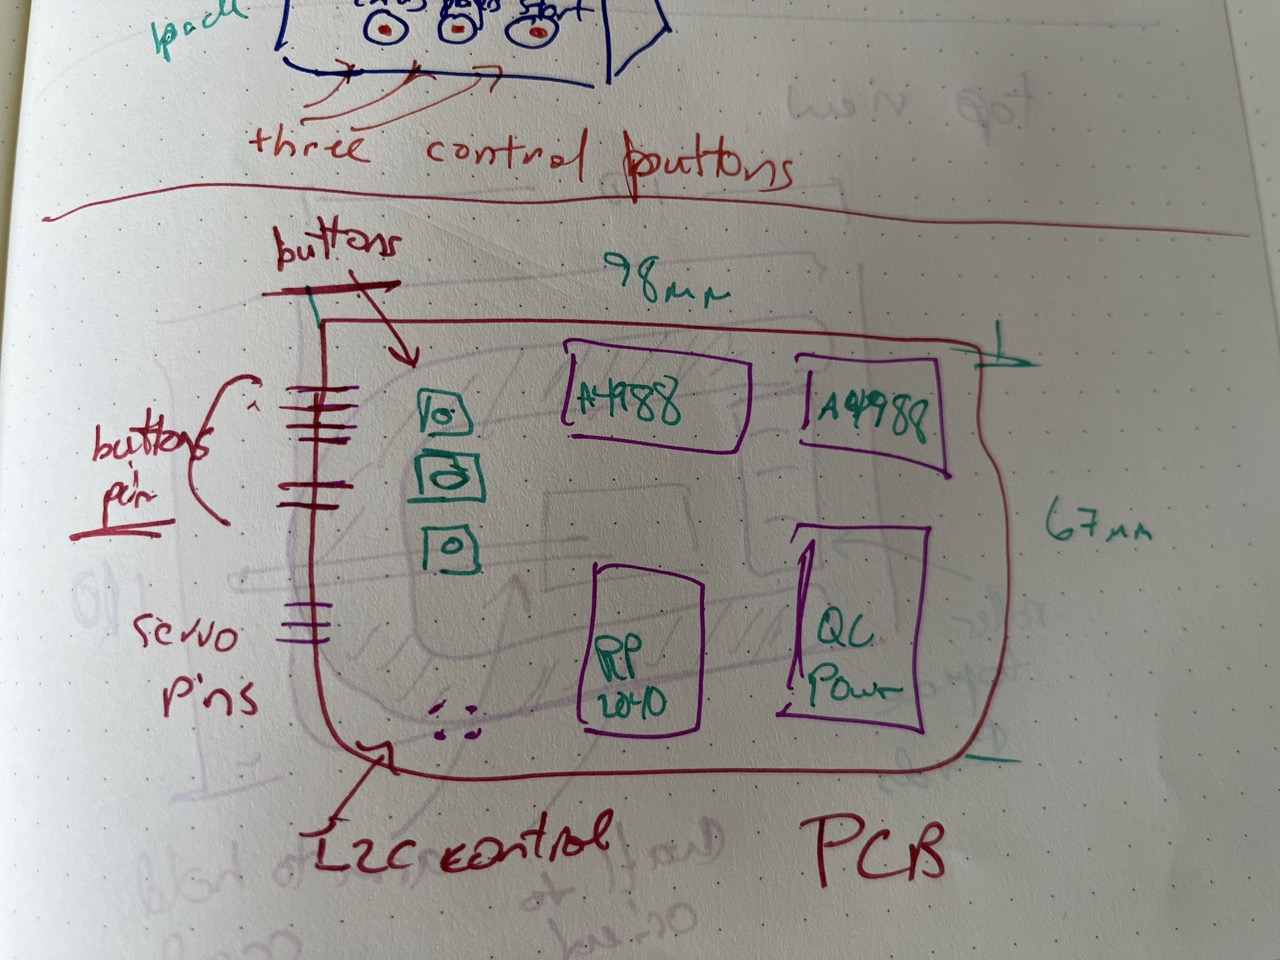 pack
start
three control buttons
buttons
98mm
A4988
A4988
buttons
pin
67mm
servo
pins
RP
2040
QC
Power
I2C control
PCB